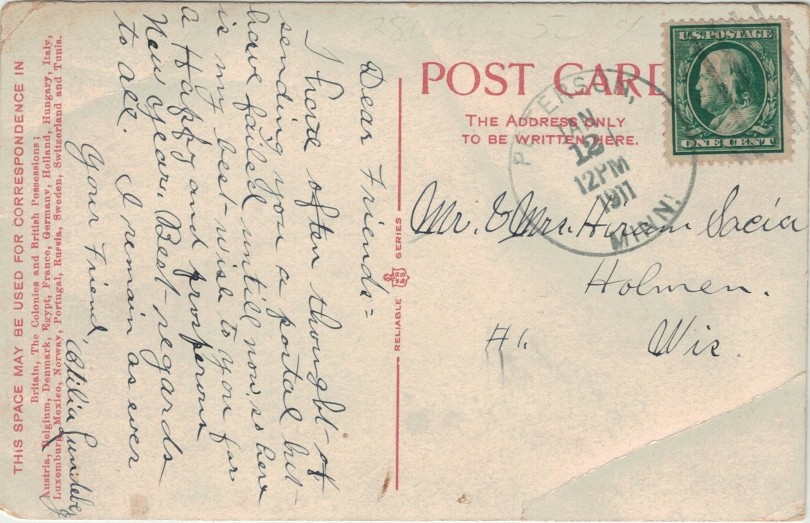 THIS SPACE MAY BE USED FOR CORRESPONDENCE IN
Britain, The Colonies and British Possessions;
Austria, Belgium, Denmark, Egypt, France, Germany, Holland, Hungary, Italy,
Luxemburg, Mexico, Norway, Portugal, Russia, Sweden, Switzerland and Tunis.
Dear Friends =
I have often thought of
sending you a postal but
have failed untill now, so here
is my best wish to you for
a Happy and prosperous
New Year. Best regards
to all. I remain as ever
Your Friend,
RELIABLE SERIES
POST CARD
THE ADDRESS ONLY
TO BE WRITTEN HERE.
U.S. POSTAGE
ONE CENT
PETERSON,
JAN
12
12PM
1911
MINN.
Mr. & Mrs. Hiram Sacia
Holmen.
Wis.